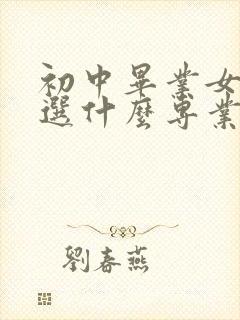 初中畢業女
選什麼專業
劉春燕